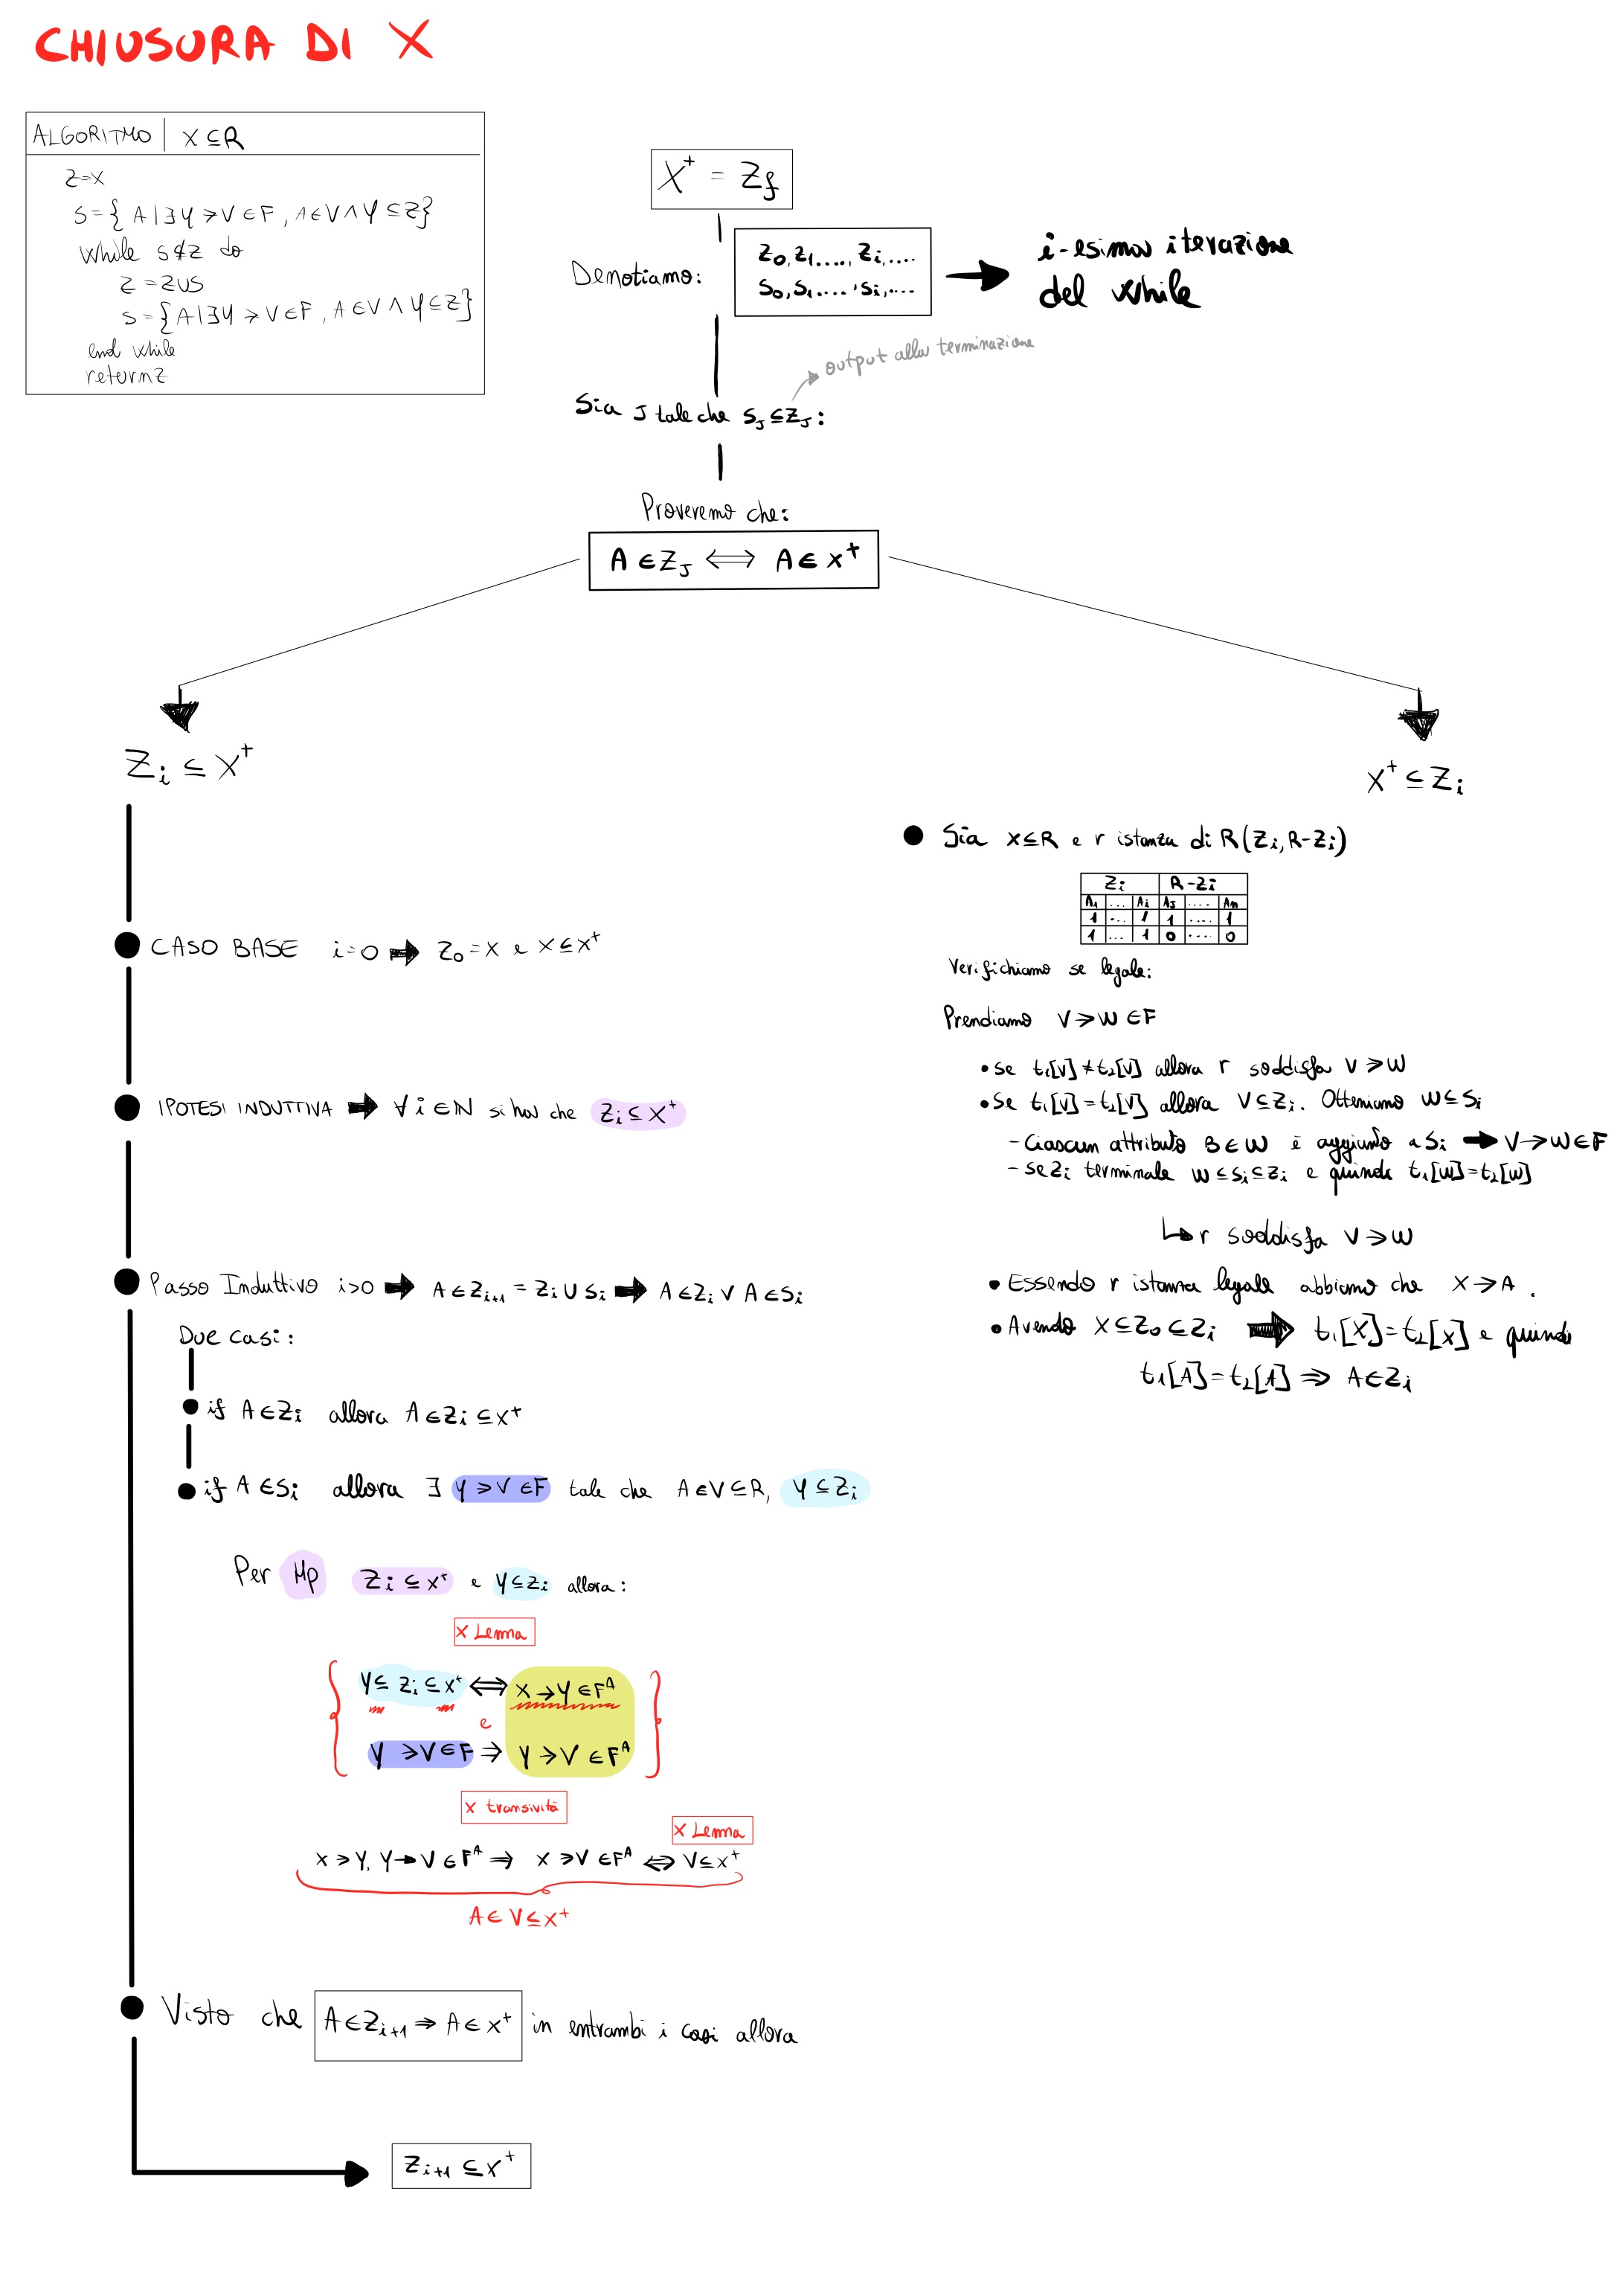 CHIUSURA DI X
ALGORITMO | X ⊆ R
Z=X
S={ A | ∃ Y → V ∈ F , A ∈ V ∧ Y ⊆ Z}
while S ⊄ Z do
Z = Z ∪ S
S = {A | ∃ Y → V ∈ F , A ∈ V ∧ Y ⊆ Z}
end while
return Z
X⁺ = Z_f
Denotiamo:
Z₀, Z₁...., Z_i, ....
S₀, S₁....., S_i, ....
i-esima iterazione
del while
output alla terminazione
Sia J tale che S_J ⊆ Z_J :
Proveremo che:
A ∈ Z_J ⟺ A ∈ X⁺
Z_i ⊆ X⁺
CASO BASE i=0 ➡ Z₀ = X e X ⊆ X⁺
IPOTESI INDUTTIVA ➡ ∀ i ∈ ℕ si ha che Z_i ⊆ X⁺
Passo Induttivo i>0 ➡ A ∈ Z_{i+1} = Z_i ∪ S_i ➡ A ∈ Z_i ∨ A ∈ S_i
Due casi:
if A ∈ Z_i allora A ∈ Z_i ⊆ X⁺
if A ∈ S_i allora ∃ Y → V ∈ F tale che A ∈ V ⊆ R, Y ⊆ Z_i
Per Hp Z_i ⊆ X⁺ e Y ⊆ Z_i allora:
X Lemma
Y ⊆ Z_i ⊆ X⁺ ⟺ X → Y ∈ F^A
e
Y → V ∈ F ⇒ Y → V ∈ F^A
X transività
X Lemma
X → Y, Y → V ∈ F^A ⇒ X → V ∈ F^A ⟺ V ⊆ X⁺
A ∈ V ⊆ X⁺
Visto che A ∈ Z_{i+1} ⇒ A ∈ X⁺ in entrambi i casi allora
Z_{i+1} ⊆ X⁺
X⁺ ⊆ Z_i
Sia X ⊆ R e r istanza di R(Z_i, R-Z_i)
Z_i | R-Z_i
A₁ | ... | A_i | A_J | .... | A_n
1 | ... | 1 | 1 | .... | 1
1 | ... | 1 | 0 | .... | 0
Verifichiamo se legale:
Prendiamo V → W ∈ F
• se t₁[V] ≠ t₂[V] allora r soddisfa V → W
• Se t₁[V] = t₂[V] allora V ⊆ Z_i. Otteniamo W ⊆ S_i
- Ciascun attributo B ∈ W è aggiunto a S_i ➡ V → W ∈ F
- se Z_i terminale W ⊆ S_i ⊆ Z_i e quindi t₁[W] = t₂[W]
↳ r soddisfa V → W
• Essendo r istanza legale abbiamo che X → A .
• Avendo X ⊆ Z₀ ⊆ Z_i ➡ t₁[X] = t₂[X] e quindi
t₁[A] = t₂[A] ⇒ A ∈ Z_i